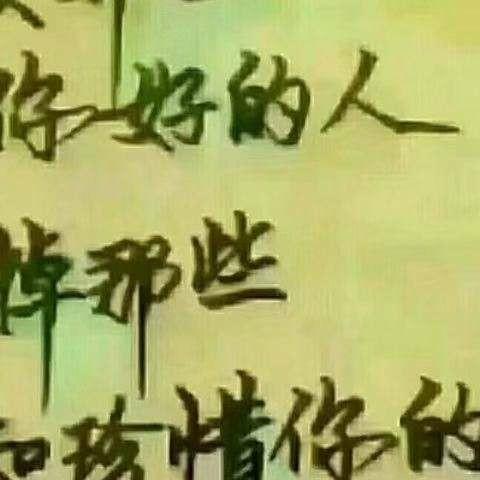 你好的人
掉那些
和珍惜你的